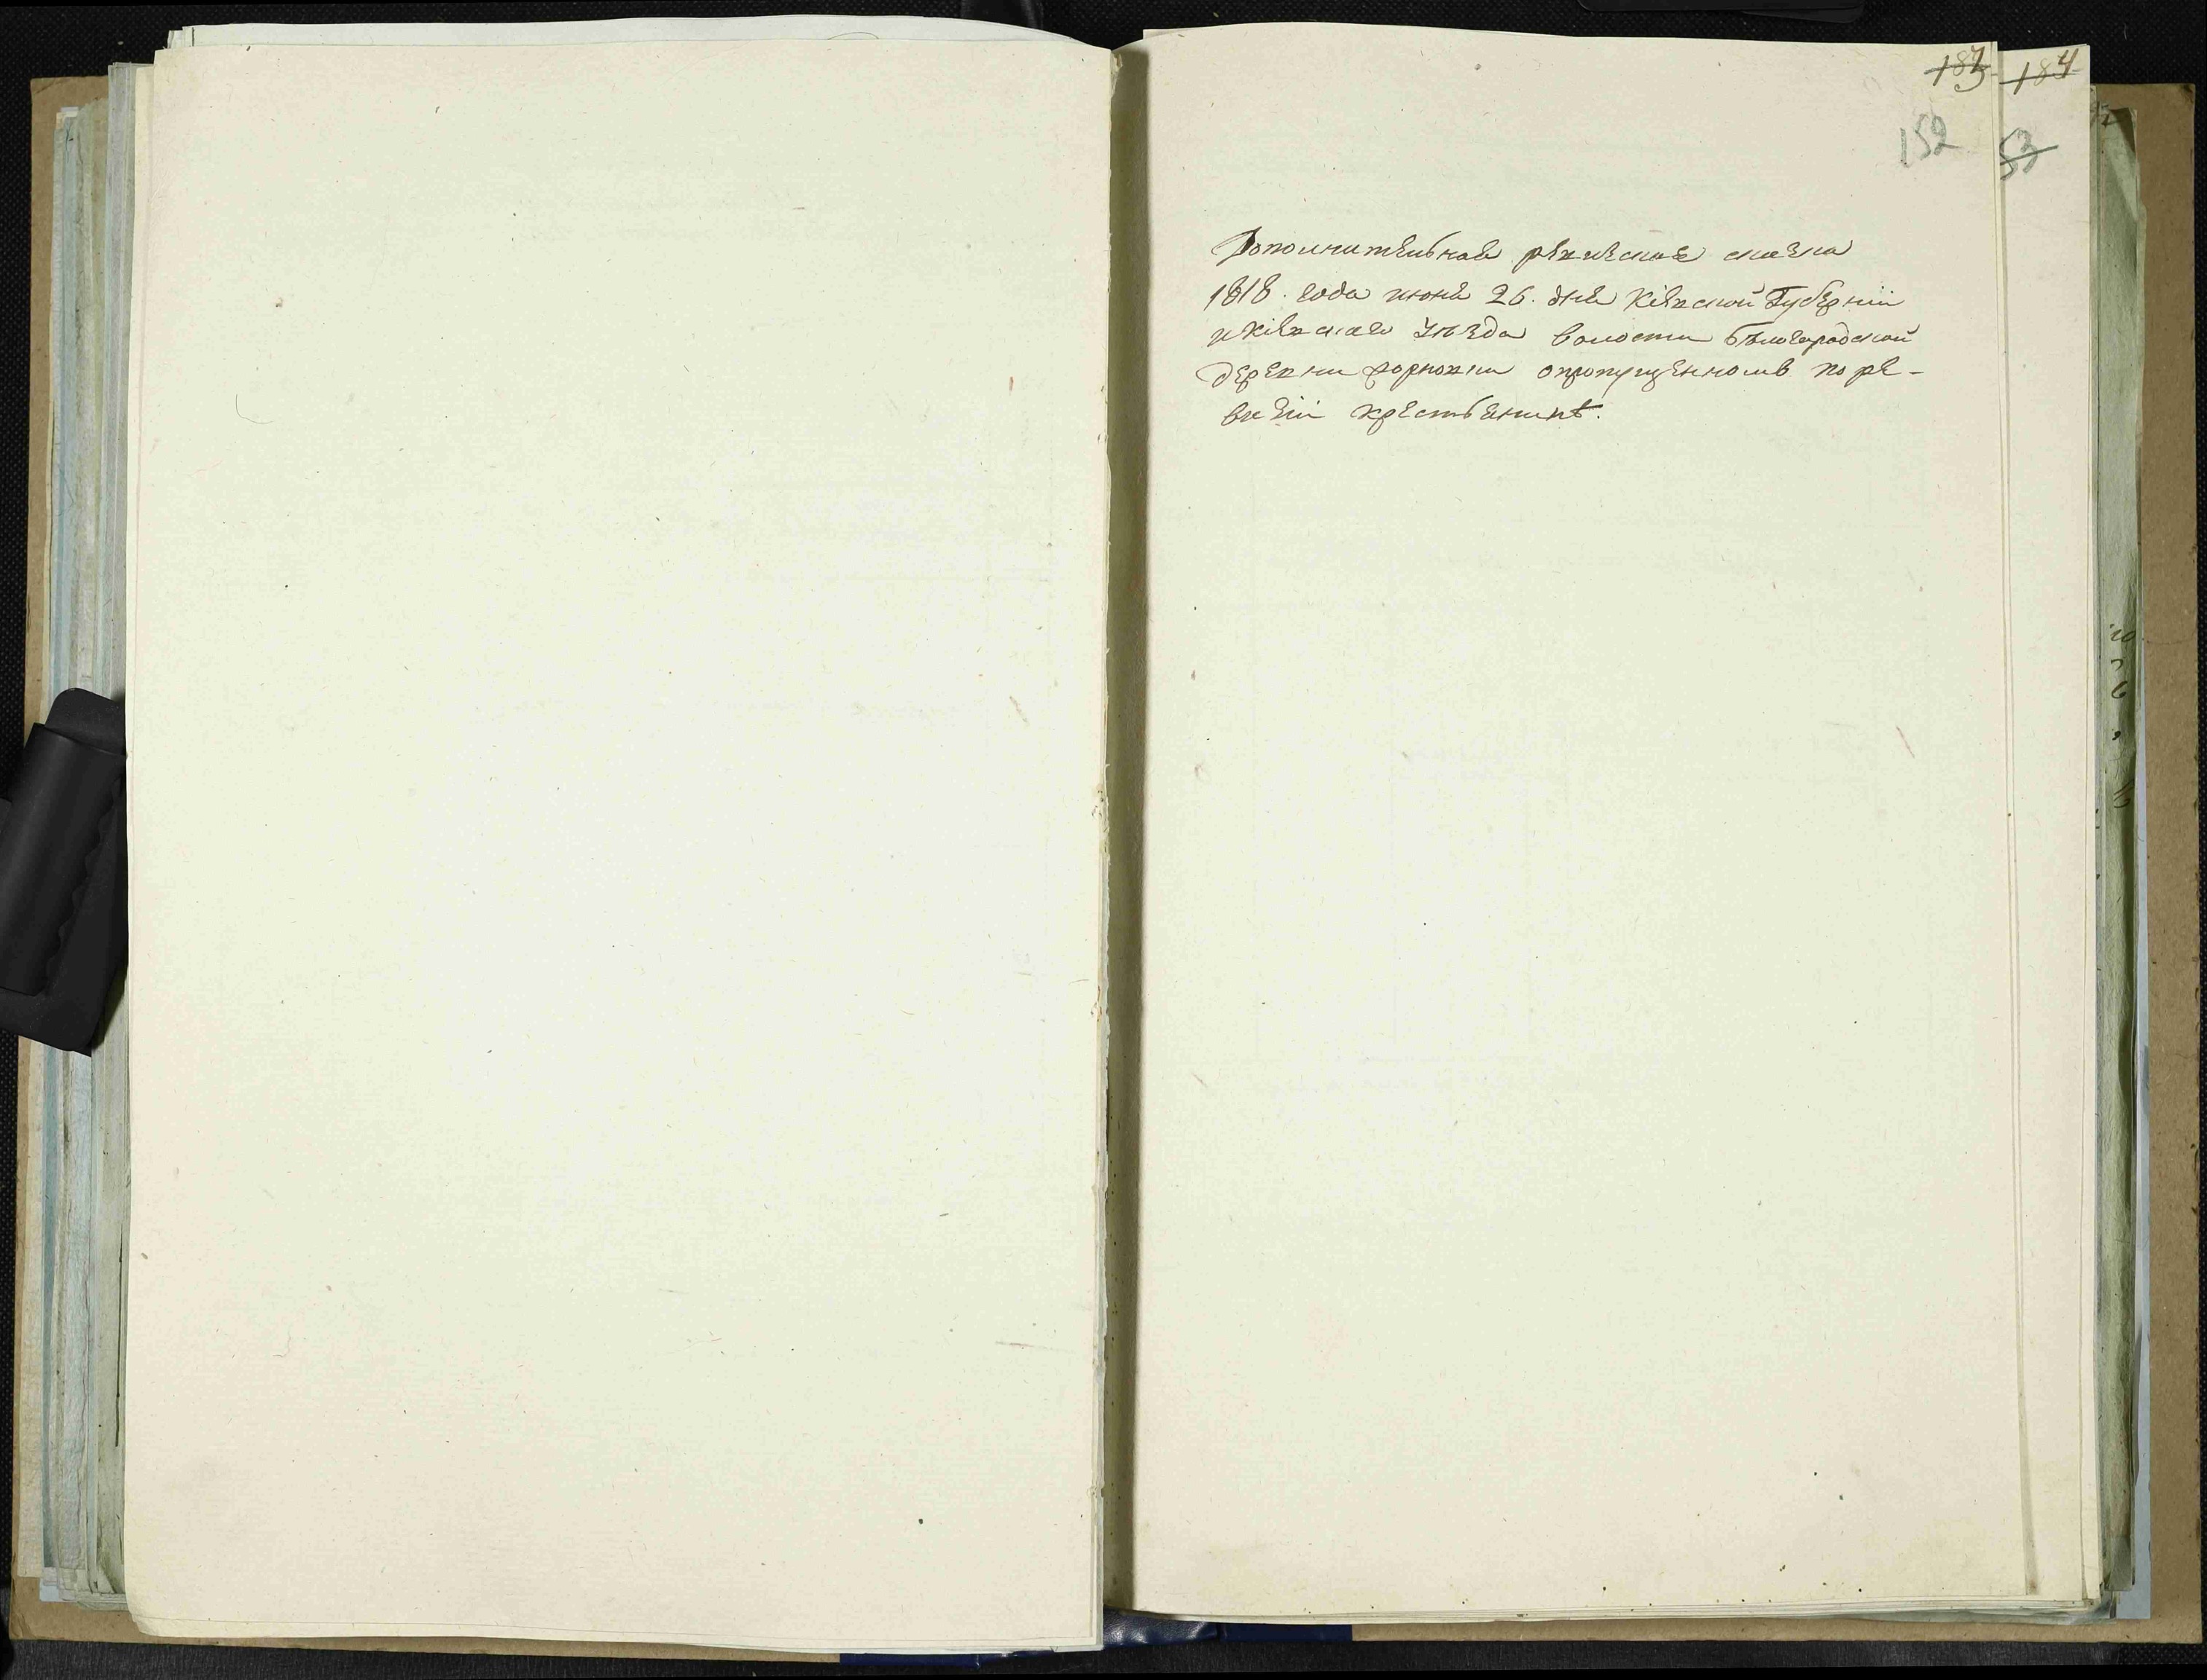 183 184
152 53
Дополнительная ревиская сказка
1818. года июня 26. дня Кіевской Губерніи
и Кіевскаго Уѣзда волости Бѣлогородской
деревни о пропущенномъ по ре-
визіи крестьянинѣ.